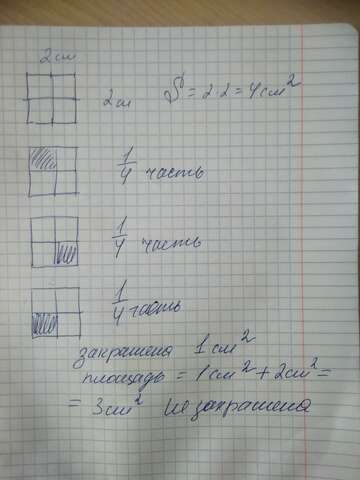 2см
2см S = 2·2 = 4см²
1/4 часть
1/4 часть
1/4 часть
закрашена 1см²
площадь = 1см² + 2см² =
= 3см² не закрашена